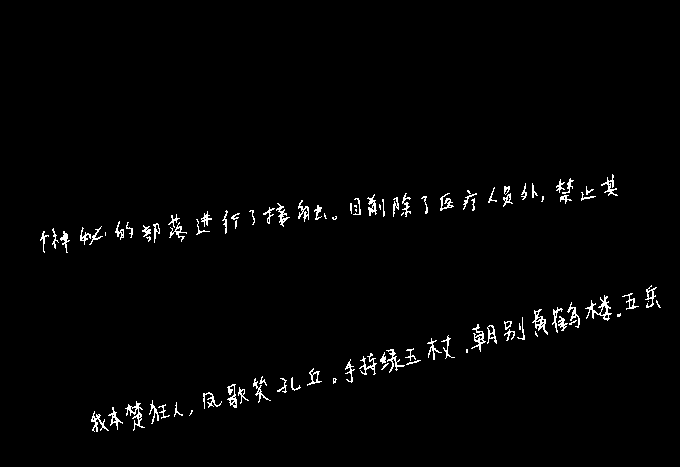 个神秘的部落进行了接触。目前除了医疗人员外,禁止其
我本楚狂人,凤歌笑孔丘。手持绿玉杖,朝别黄鹤楼。五岳